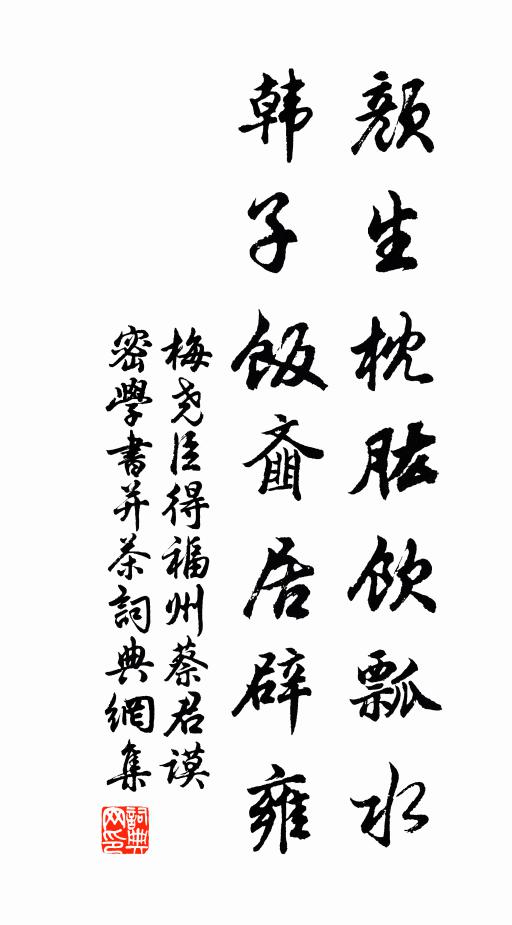 颜生枕肱饮瓢水
韩子饭齑居辟雍
梅尧臣得福州蔡君谟
密学书并茶词典网集
词典网印